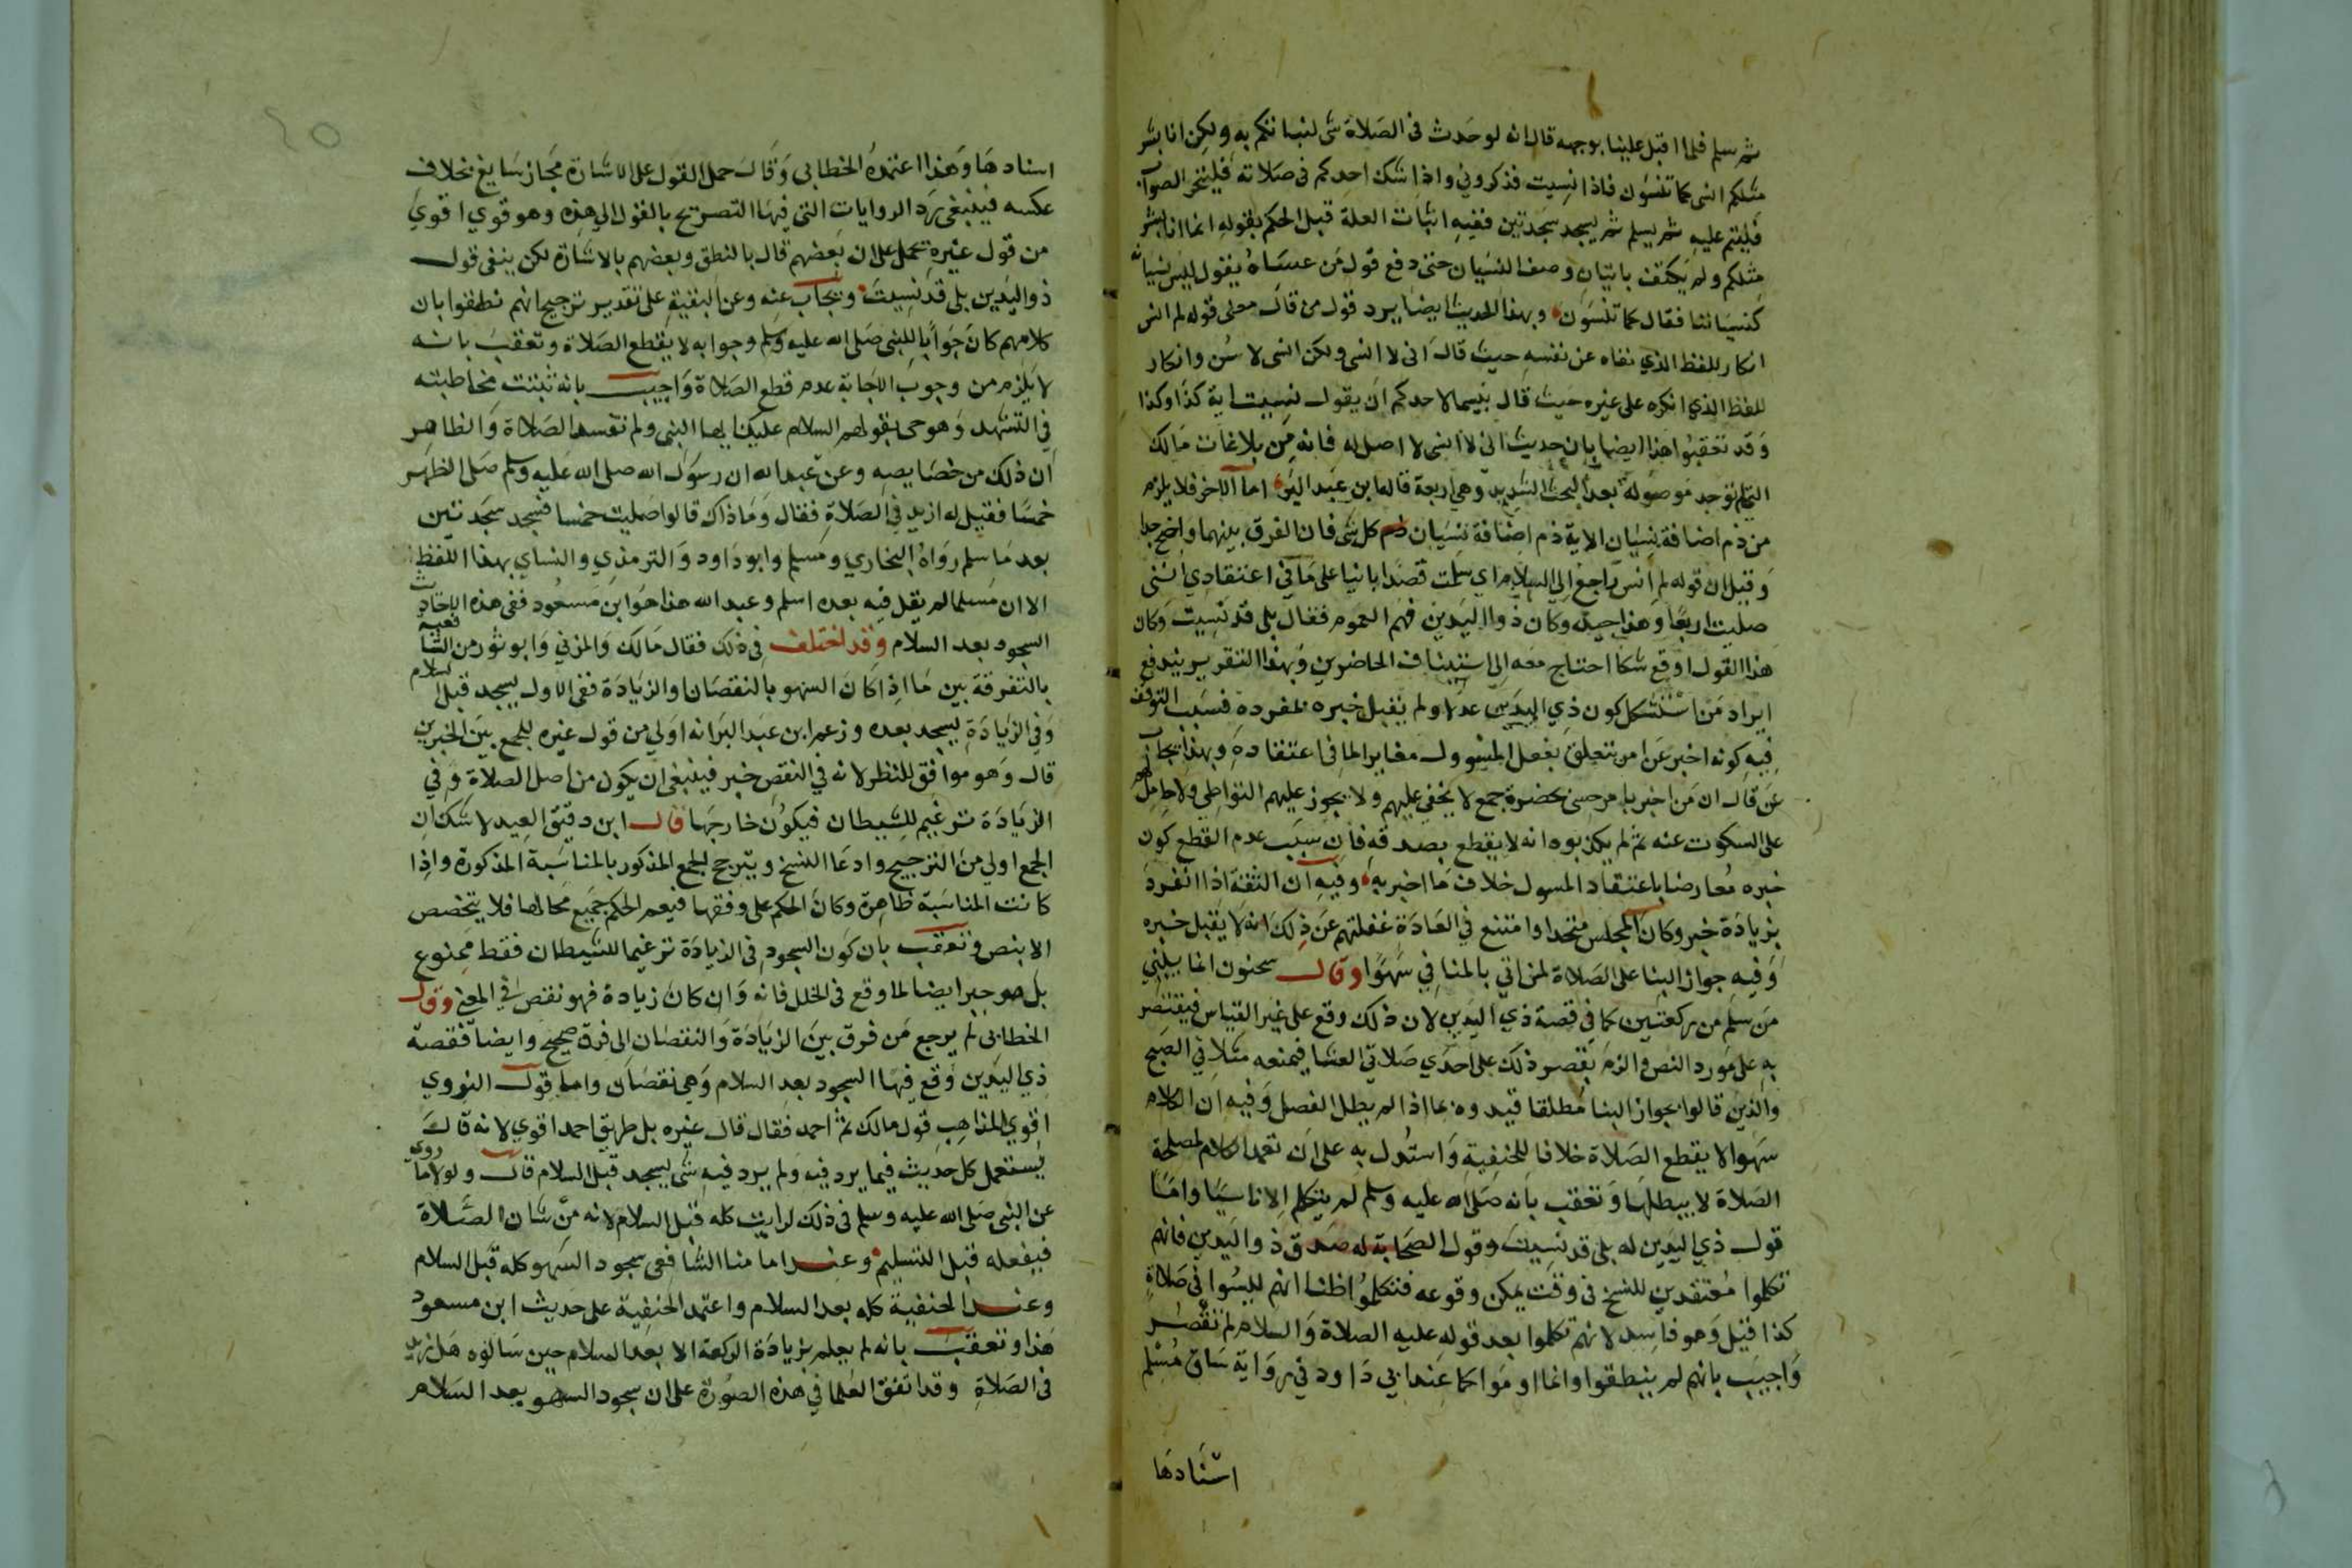 ثم سلم فلما اقبل علينا بوجهه قال انه لو حدث في الصلاة شي لنباتكم به ولكن انا بشر
مثلكم انسى كما تنسون فاذا نسيت فذكروني واذا شك احدكم في صلاته فليتحر الصواب
فليتم عليه ثم يسلم ثم يسجد سجدتين ففيه اثبات العلة قبل الحكم بقوله انما انا بشر
مثلكم ولم يكتف باتيان وصف النسيان حتى دفع قول من عساه يقول ليس نسيانه
كنسياننا فقال كما تنسون وبهذا الحديث ايضا يرد قول من قال معنى قوله لم انس
انكار للفظ الذي نفاه عن نفسه حيث قال اني لا انسى ولكن انسى لاسن وانكار
للفظ الذي انكره على غيره حيث قال بيسما لاحدكم ان يقول نسيت اية كذا وكذا
وقد تعقبوا هذا ايضا بان حديث اني لا انسى لا اصل له فانه من بلاغات مالك
التي لم توجد موصولة بعد البحث الشديد وهي اربعة قاله ابن عبد البر اما الاخر فلا يلزم
من ذم اضافة نسيان الاية ذم اضافة نسيان كل شي فان الفرق بينهما واضح جدا
وقيل ان قوله لم انس راجع الى السلام اي سلمت قصدا بانيا على ما في اعتقادي انني
صليت اربعا وهذا جيد وكان ذو اليدين فهم العموم فقال بلى قد نسيت وكان
هذا القول اوقع شكا احتاج معه الى استيناف الحاضرين وبهذا التقرير يندفع
ايراد من استشكل كون ذي اليدين عدلا ولم يقبل خبره بمفرده فسبب التوقف
فيه كونه اخبر عن امر يتعلق بفعل المسوول مغاير لما في اعتقاده وبهذا يجاب
عن قال ان من اخبر بامر حسي بحضرة جمع لا يخفى عليهم ولا يجوز عليهم التواطي ولا حامل لهم
على السكوت عنه ثم لم يكذبوه انه لا يقطع بصدقه فان سبب عدم القطع كون
خبره معارضا باعتقاد المسول خلاف ما اخبر به وفيه ان الثقة اذا انفرد
بزيادة خبر وكان المجلس متحدا وامتنع في العادة غفلتهم عن ذلك انه لا يقبل خبره
وفيه جواز البنا على الصلاة لمن اتي بالمنافي سهوا وقال سحنون انما يبني
من سلم من ركعتين كما في قصة ذي اليدين لان ذلك وقع على غير القياس فيقتصر
به على مورد النص والزم بقصر ذلك على احدي صلاتي العشا فيمنعه مثلا في الصبح
والذين قالوا بجواز البنا مطلقا قيدوه بما اذا لم يطل الفصل وفيه ان الكلام
سهوا لا يقطع الصلاة خلافا للحنفية واستدل به على ان تعمد الكلام لمصلحة
الصلاة لا يبطلها وتعقب بانه صلى الله عليه وسلم لم يتكلم الا ناسيا واما
قول ذي اليدين له بلى قد نسيت وقول الصحابة له صدق ذو اليدين فانهم
تكلموا معتقدين للنسخ في وقت يمكن وقوعه فتكلموا ظنا انهم ليسوا في صلاة
كذا قيل وهو فاسد لانهم تكلموا بعد قوله عليه الصلاة والسلام لم تقصر
واجيب بانهم لم ينطقوا وانما اوموا كما عند ابي داود في رواية ساق مسلم
اسنادها
اسنادها وهذا اعتمده الخطابي وقال حمل القول على الاشارة مجاز سايغ بخلاف
عكسه فينبغي رد الروايات التي فيها التصريح بالقول الى هذه وهو قوي اقوي
من قول غيره يحمل على ان بعضهم قال بالنطق وبعضهم بالاشارة لكن يبقى قول
ذو اليدين بلى قد نسيت ويجاب عنه وعن البقية على تقدير ترجيح انهم نطقوا بان
كلامهم كان جوابا للنبي صلى الله عليه وسلم وجوابه لا يقطع الصلاة وتعقب بانه
لا يلزم من وجوب الاجابة عدم قطع الصلاة واجيب بانه ثبتت مخاطبته
في التشهد وهو حي بقولهم السلام عليك ايها النبي ولم تفسد الصلاة والظاهر
ان ذلك من خصايصه وعن عبد الله ان رسول الله صلى الله عليه وسلم صلى الظهر
خمسا فقيل له ازيد في الصلاة فقال وما ذاك قالوا صليت خمسا فسجد سجدتين
بعد ما سلم رواه البخاري ومسلم وابو داود والترمذي والنساي بهذا اللفظ
الا ان مسلما لم يقل فيه بعد ما سلم وعبد الله هذا هو ابن مسعود ففي هذه الاحاديث
السجود بعد السلام وقد اختلف في ذلك فقال مالك والمزني وابو ثور من الشافعية
بالتفرقة بين ما اذا كان السهو بالنقصان او الزيادة ففي الاول يسجد قبل السلام
وفي الزيادة يسجد بعده وزعم ابن عبد البر انه اولي من قول غيره للجمع بين الخبرين
قال وهو موافق للنظر لانه في النقص خبر فينبغي ان يكون من اصل الصلاة وفي
الزيادة ترغيم للشيطان فيكون خارجها قال ابن دقيق العيد لا شك ان
الجمع اولي من الترجيح وادعا النسخ ويترجح الجمع المذكور بالمناسبة المذكورة واذا
كانت المناسبة ظاهرة وكان الحكم على وفقها فيعم الحكم جميع محالها فلا يتخصص
الا بنص وتعقب بان كون السجود في الزيادة ترغيما للشيطان فقط ممنوع
بل هو جبر ايضا لما وقع في الخلل فانه وان كان زيادة فهو نقص في المعنى وقال
الخطابي لم يرجع من فرق بين الزيادة والنقصان الى فرق صحيح وايضا فقصة
ذي اليدين وقع فيها السجود بعد السلام وهي نقصان واما قول النووي
اقوي المذاهب قول مالك ثم احمد فقال قال غيره بل طريق احمد اقوي لانه قال
يستعمل كل حديث فيما يرد فيه ولم يرد فيه شي يسجد قبل السلام قال ولولا ما روى
عن النبي صلى الله عليه وسلم في ذلك لرايت كله قبل السلام لانه من شان الصلاة
فيفعله قبل التسليم وعند امامنا الشافعي سجود السهو كله قبل السلام
وعند الحنفية كله بعد السلام واعتمد الحنفية على حديث ابن مسعود
هذا وتعقب بانه لم يعلم بزيادة الركعة الا بعد السلام حين سالوه هل زيد
في الصلاة وقد اتفق العلما في هذه الصورة على ان سجود السهو بعد السلام